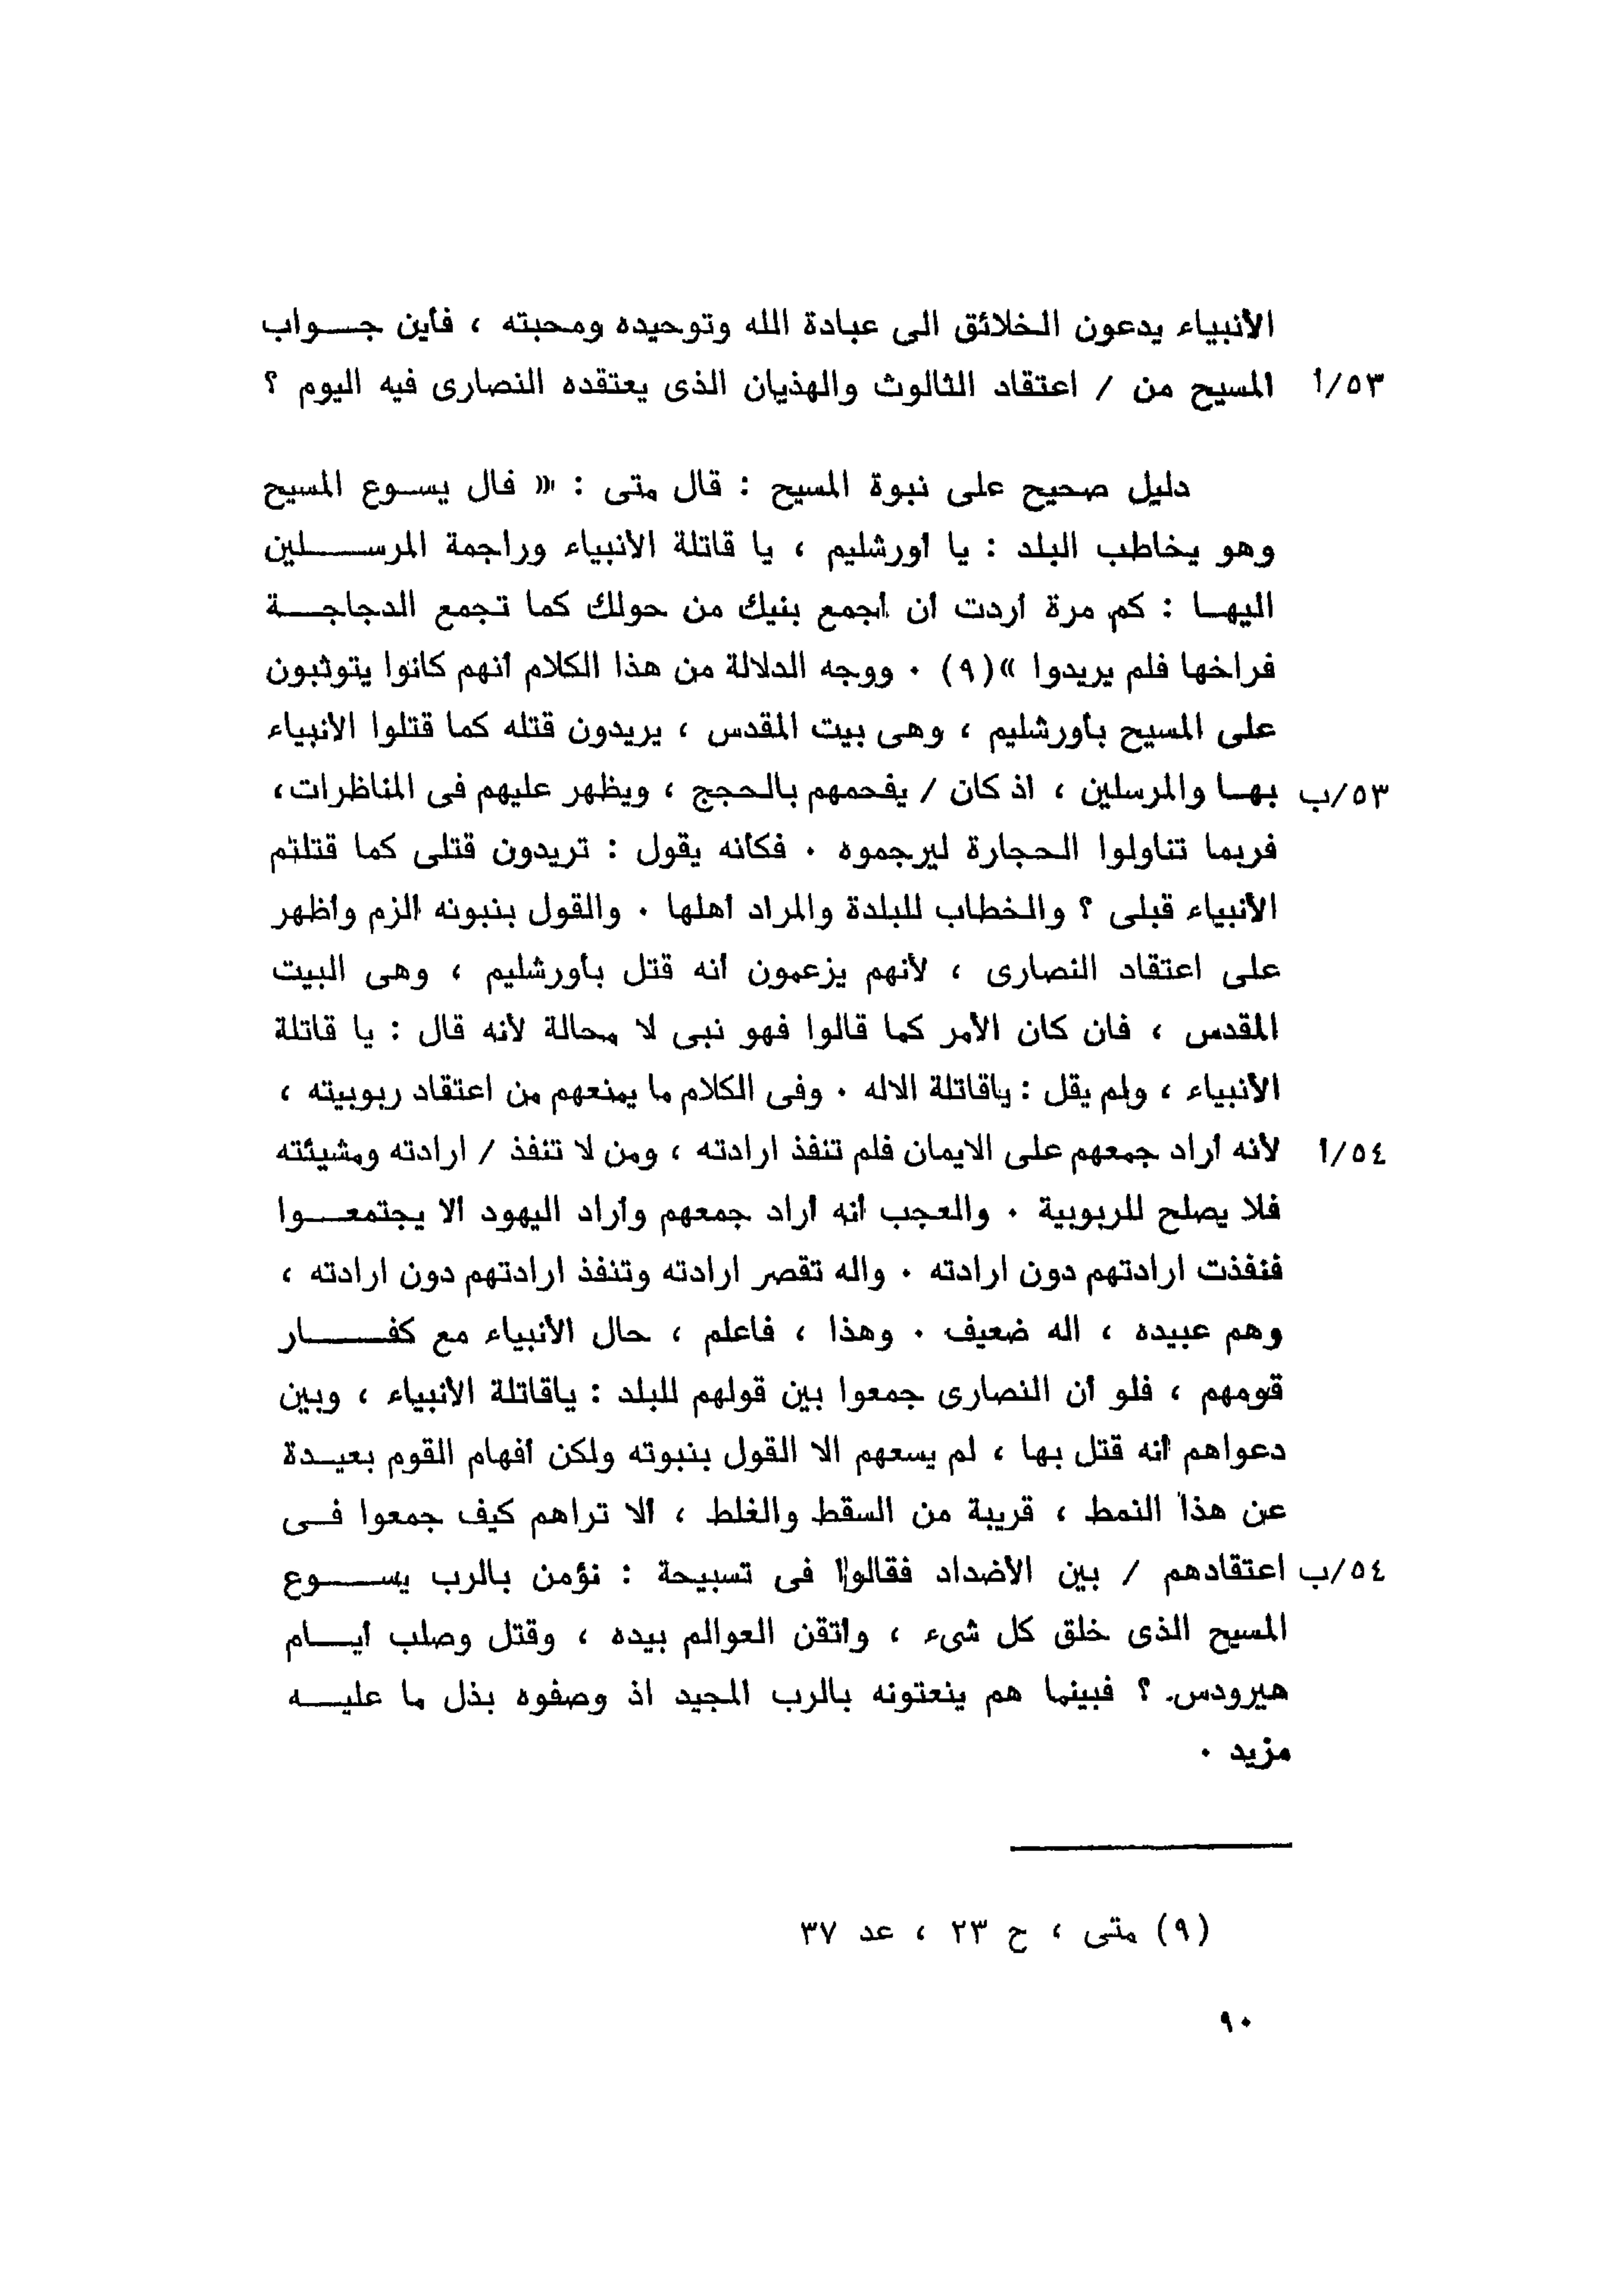 الأنبياء يدعون الخلائق الى عبادة الله وتوحيده ومحبته ، فأين جـــواب
٥٣/أ المسيح من / اعتقاد الثالوث والهذيان الذى يعتقده النصارى فيه اليوم ؟
دليل صحيح على نبوة المسيح : قال متى : «« فال يســوع المسيح
وهو يخاطب البلد : يا أورشليم ، يا قاتلة الأنبياء وراجمة المرســـــلين
اليهــا : كم مرة أردت أن أجمع بنيك من حولك كما تجمع الدجاجـــة
فراخها فلم يريدوا »(٩) ٠ ووجه الدلالة من هذا الكلام أنهم كانوا يتوثبون
على المسيح بأورشليم ، وهى بيت المقدس ، يريدون قتله كما قتلوا الأنبياء
٥٣/ب بهــا والمرسلين ، اذ كان / يفحمهم بالحجج ، ويظهر عليهم فى المناظرات ،
فربما تناولوا الحجارة ليرجموه ٠ فكأنه يقول : تريدون قتلى كما قتلتم
الأنبياء قبلى ؟ والخطاب للبلدة والمراد أهلها ٠ والقول بنبونه ألزم وأظهر
على اعتقاد النصارى ، لأنهم يزعمون أنه قتل بأورشليم ، وهى البيت
المقدس ، فان كان الأمر كما قالوا فهو نبى لا محالة لأنه قال : يا قاتلة
الأنبياء ، ولم يقل : ياقاتلة الاله ٠ وفى الكلام ما يمنعهم من اعتقاد ربوبيته ،
٥٤/أ لأنه أراد جمعهم على الايمان فلم تنفذ ارادته ، ومن لا تنفذ / ارادته ومشيئته
فلا يصلح للربوبية ٠ والعجب أنه أراد جمعهم وأراد اليهود ألا يجتمعـــوا
فنفذت ارادتهم دون ارادته ٠ واله تقصر ارادته وتنفذ ارادتهم دون ارادته ،
وهم عبيده ، اله ضعيف ٠ وهذا ، فاعلم ، حال الأنبياء مع كفـــــار
قومهم ، فلو أن النصارى جمعوا بين قولهم للبلد : ياقاتلة الأنبياء ، وبين
دعواهم أنه قتل بها ، لم يسعهم الا القول بنبوته ولكن أفهام القوم بعيــدة
عن هذا النمط ، قريبة من السقط والغلط ، ألا تراهم كيف جمعوا فــى
٥٤/ب اعتقادهم / بين الأضداد فقالوا فى تسبيحة : نؤمن بالرب يســـــوع
المسيح الذى خلق كل شىء ، وأتقن العوالم بيده ، وقتل وصلب أيـــام
هيرودس ؟ فبينما هم ينعتونه بالرب المجيد اذ وصفوه بذل ما عليـــه
مزيد ٠
(٩) متى ، ح ٢٣ ، عد ٣٧
٩٠